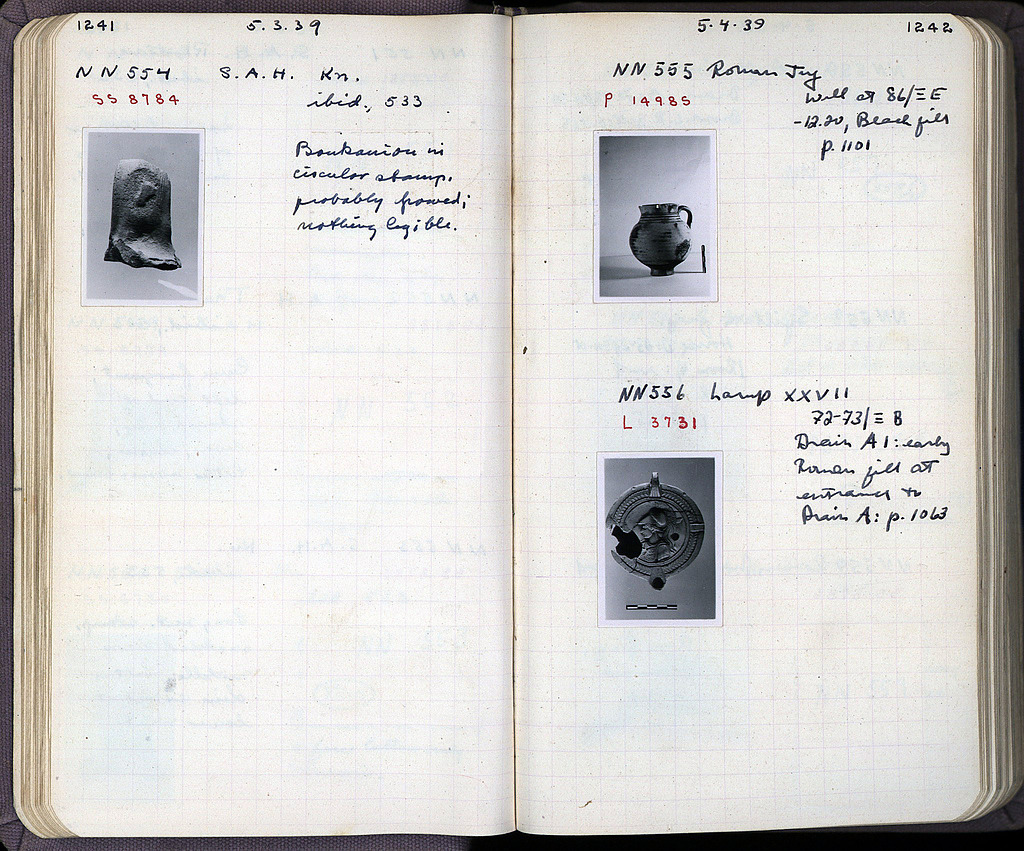 1241
5.3.39
NN 554 S.A.H. Kn.
SS 8784
ibid., 533
Boukanion in
circular stamp.
probably frowed;
nothing legible.
5.4.39
1242
NN 555 Roman Jug
P 14985
Well at 86/ΞE
-12.20, Black fill
p. 1101
NN 556 Lamp XXVII
L 3731
72-73/Ξ B
Drain A1: early
Roman fill at
entrance to
Drain A: p. 1063